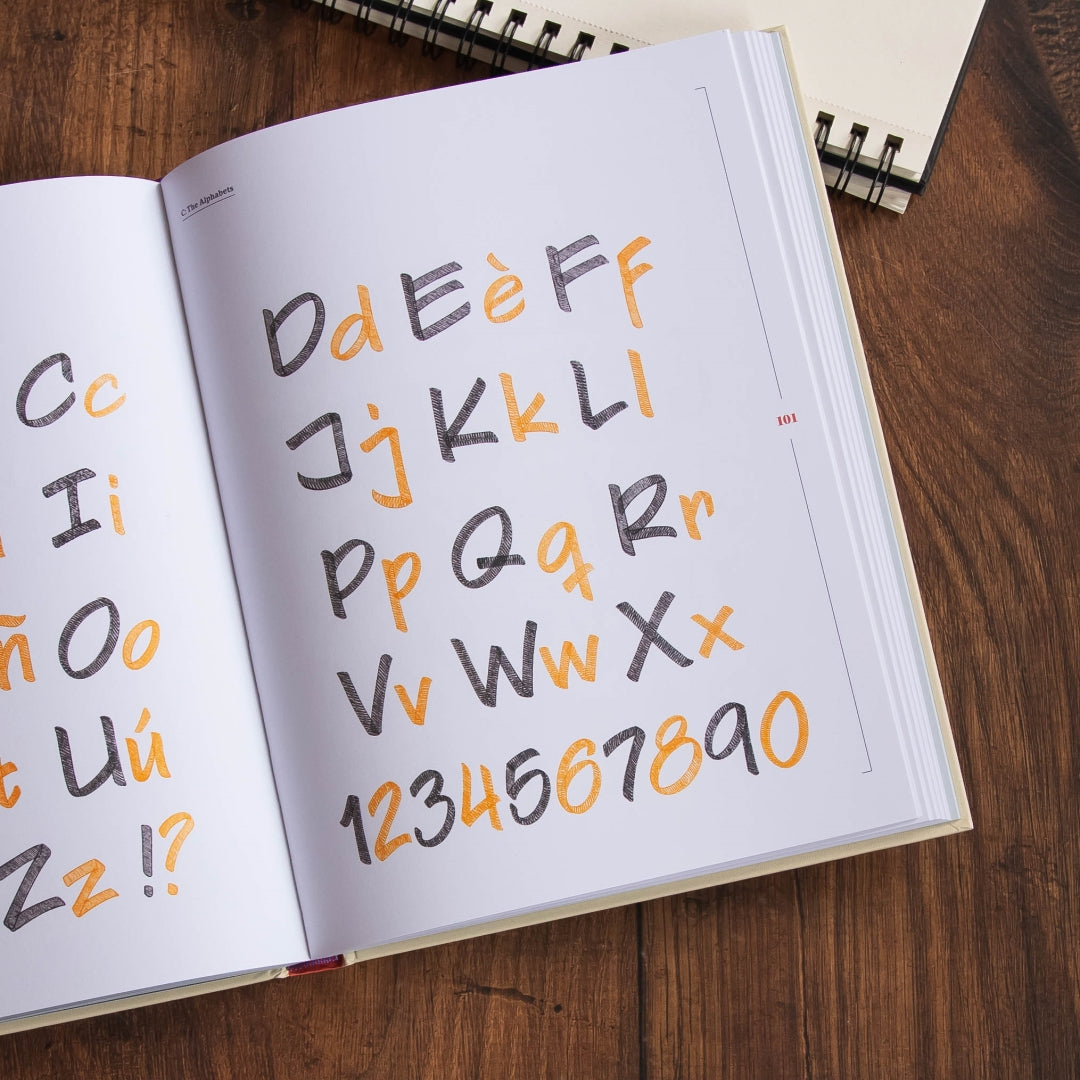 C c
I i
ñ
O o
t
U ú
Z z ! ?
C: The Alphabets
D d E è F f
J j K k L l
P p Q q R r
V v W w X x
1234567890
101